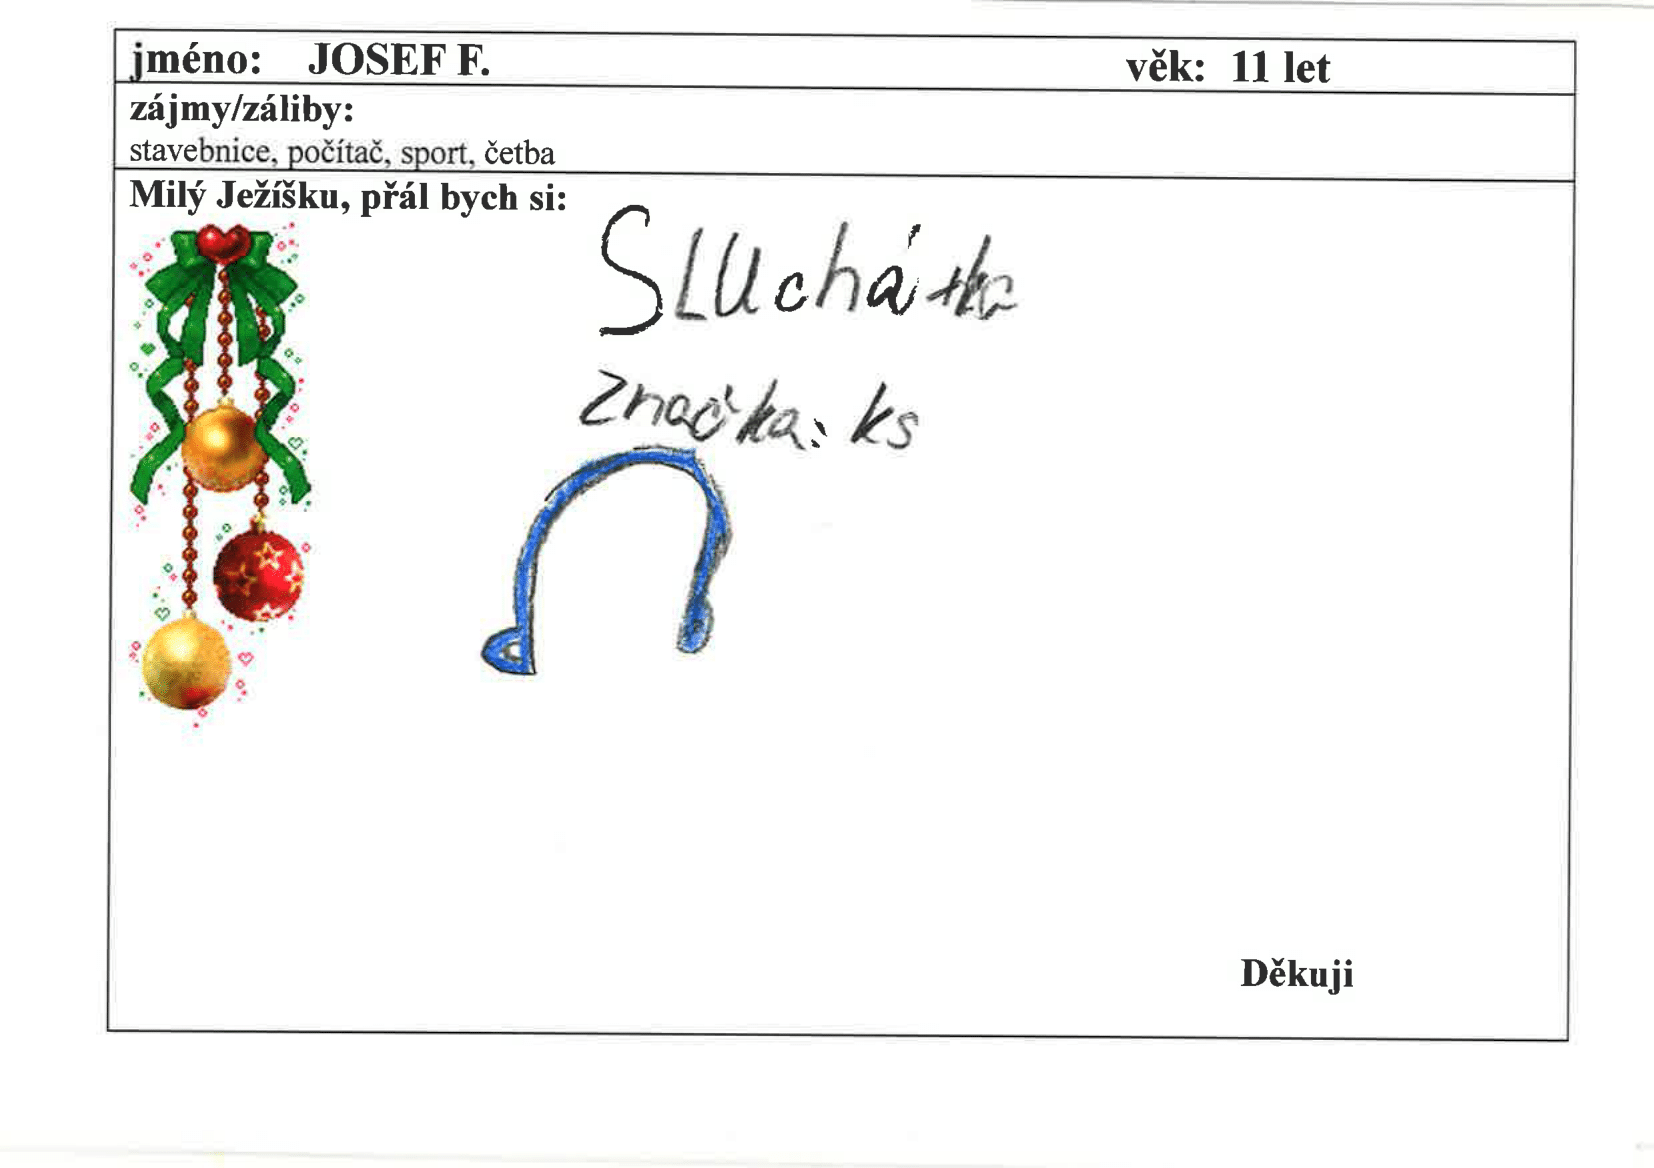 jméno: JOSEF F. věk: 11 let
zájmy/záliby:
stavebnice, počítač, sport, četba
Milý Ježíšku, přál bych si:
SLUchátka
značka: ks
Děkuji